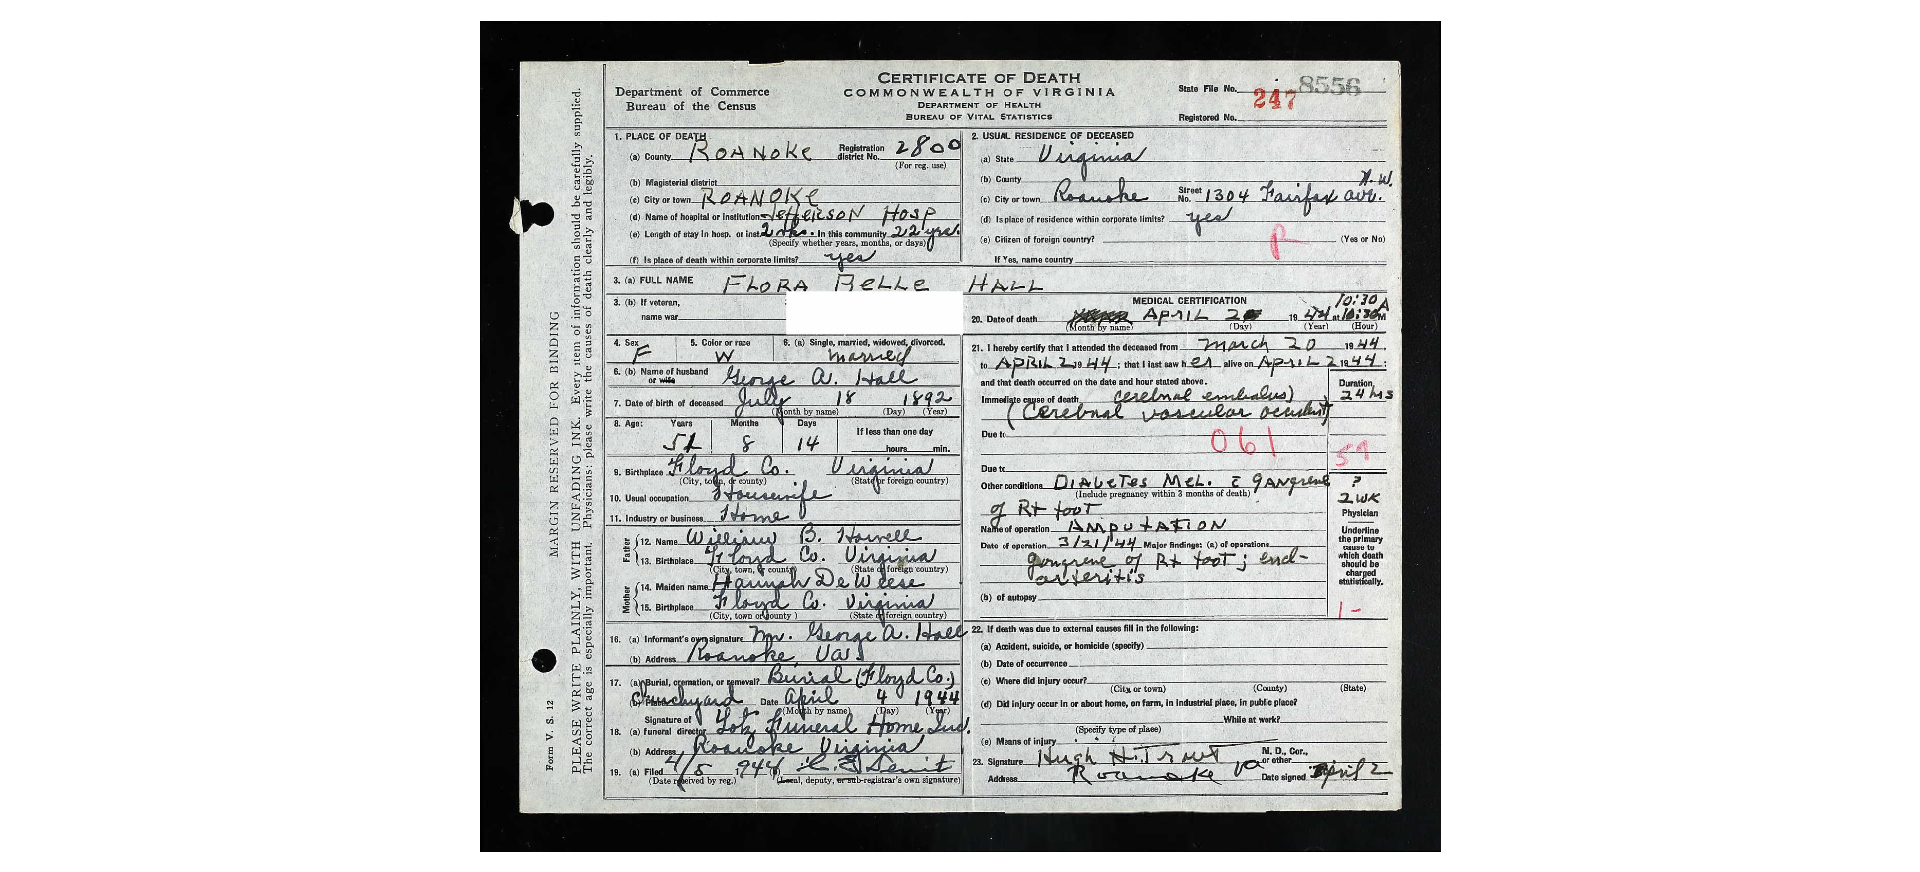 CERTIFICATE OF DEATH
COMMONWEALTH OF VIRGINIA
DEPARTMENT OF HEALTH
BUREAU OF VITAL STATISTICS
Department of Commerce
Bureau of the Census
State File No. 8556
247
Registered No.
1. PLACE OF DEATH
(a) County ROANOKE Registration district No. 2800
(For reg. use)
(b) Magisterial district
(c) City or town ROANOKE
(d) Name of hospital or institution JEFFERSON HOSP
(e) Length of stay in hosp. or inst. 2 wks. In this community 22 yrs.
(Specify whether years, months, or days)
(f) Is place of death within corporate limits? yes
2. USUAL RESIDENCE OF DECEASED
(a) State Virginia
(b) County
N.W.
(c) City or town Roanoke Street No. 1304 Fairfax ave.
(d) Is place of residence within corporate limits? yes
(e) Citizen of foreign country? (Yes or No)
R
If Yes, name country
3. (a) FULL NAME FLORA BELLE HALL
3. (b) If veteran,
name war
4. Sex F 5. Color or race W 6. (a) Single, married, widowed, divorced. married
6. (b) Name of husband or wife George A. Hall
7. Date of birth of deceased July 18 1892
(Month by name) (Day) (Year)
8. Age: Years Months Days If less than one day
51 8 14 hours min.
9. Birthplace Floyd Co. Virginia
(City, town, or county) (State or foreign country)
10. Usual occupation Housewife
11. Industry or business Home
Father
12. Name William B. Howell
13. Birthplace Floyd Co. Virginia
(City, town, or county) (State or foreign country)
Mother
14. Maiden name Hannah DeWeese
15. Birthplace Floyd Co. Virginia
(City, town or county) (State or foreign country)
16. (a) Informant's own signature Mr. George A. Hall
(b) Address Roanoke, Va.
17. (a) Burial, cremation, or removal? Burial (Floyd Co.)
(b) Place Churchyard Date April 4 1944
(Month by name) (Day) (Year)
18. (a) Signature of funeral director Lotz Funeral Home Inc.
(b) Address Roanoke Virginia
19. (a) Filed 4/5 1944 (b)
(Date received by reg.) (Local, deputy, or sub-registrar's own signature)
MEDICAL CERTIFICATION
10:30 A
20. Date of death APRIL 2 1944 at 10:30 M
(Month by name) (Day) (Year) (Hour)
21. I hereby certify that I attended the deceased from March 20 1944
to APRIL 2 1944; that I last saw her alive on APRIL 2 1944;
and that death occurred on the date and hour stated above.
Duration
Immediate cause of death cerebral embolus) 24 hrs
(Cerebral vascular accident)
Due to
061
59
Due to
Other conditions DIABETES MEL. c̄ GANGRENE ?
(Include pregnancy within 3 months of death)
of Rt foot 2 WK
Name of operation AMPUTATION
Date of operation 3/21/44 Major findings: (a) of operations
gangrene of Rt foot; end-
arteritis
(b) of autopsy
Physician
Underline the primary cause to which death should be charged statistically.
1-
22. If death was due to external causes fill in the following:
(a) Accident, suicide, or homicide (specify)
(b) Date of occurrence
(c) Where did injury occur?
(City or town) (County) (State)
(d) Did injury occur in or about home, on farm, in industrial place, in public place?
While at work?
(Specify type of place)
(e) Means of injury
23. Signature Hugh H. Trout M. D., Cor., or other
Address Roanoke Va Date signed April 2
MARGIN RESERVED FOR BINDING
PLEASE WRITE PLAINLY, WITH UNFADING INK. Every item of information should be carefully supplied.
The correct age is especially important. Physicians: please write the causes of death clearly and legibly.
Form V. S. 12